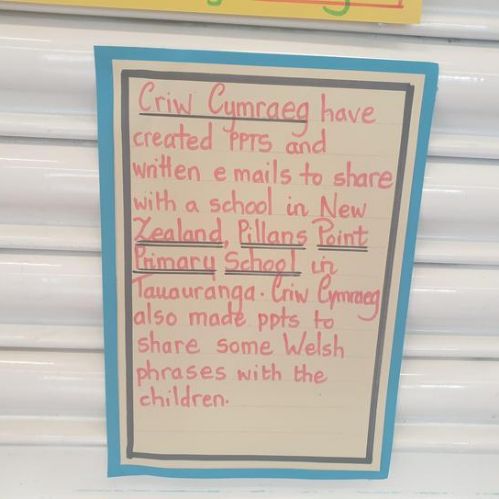 Criw Cymraeg have
created PPTS and
written e mails to share
with a school in New
Zealand, Pillans Point
Primary School in
Tauauranga. Criw Cymraeg
also made ppts to
share some Welsh
phrases with the
children.